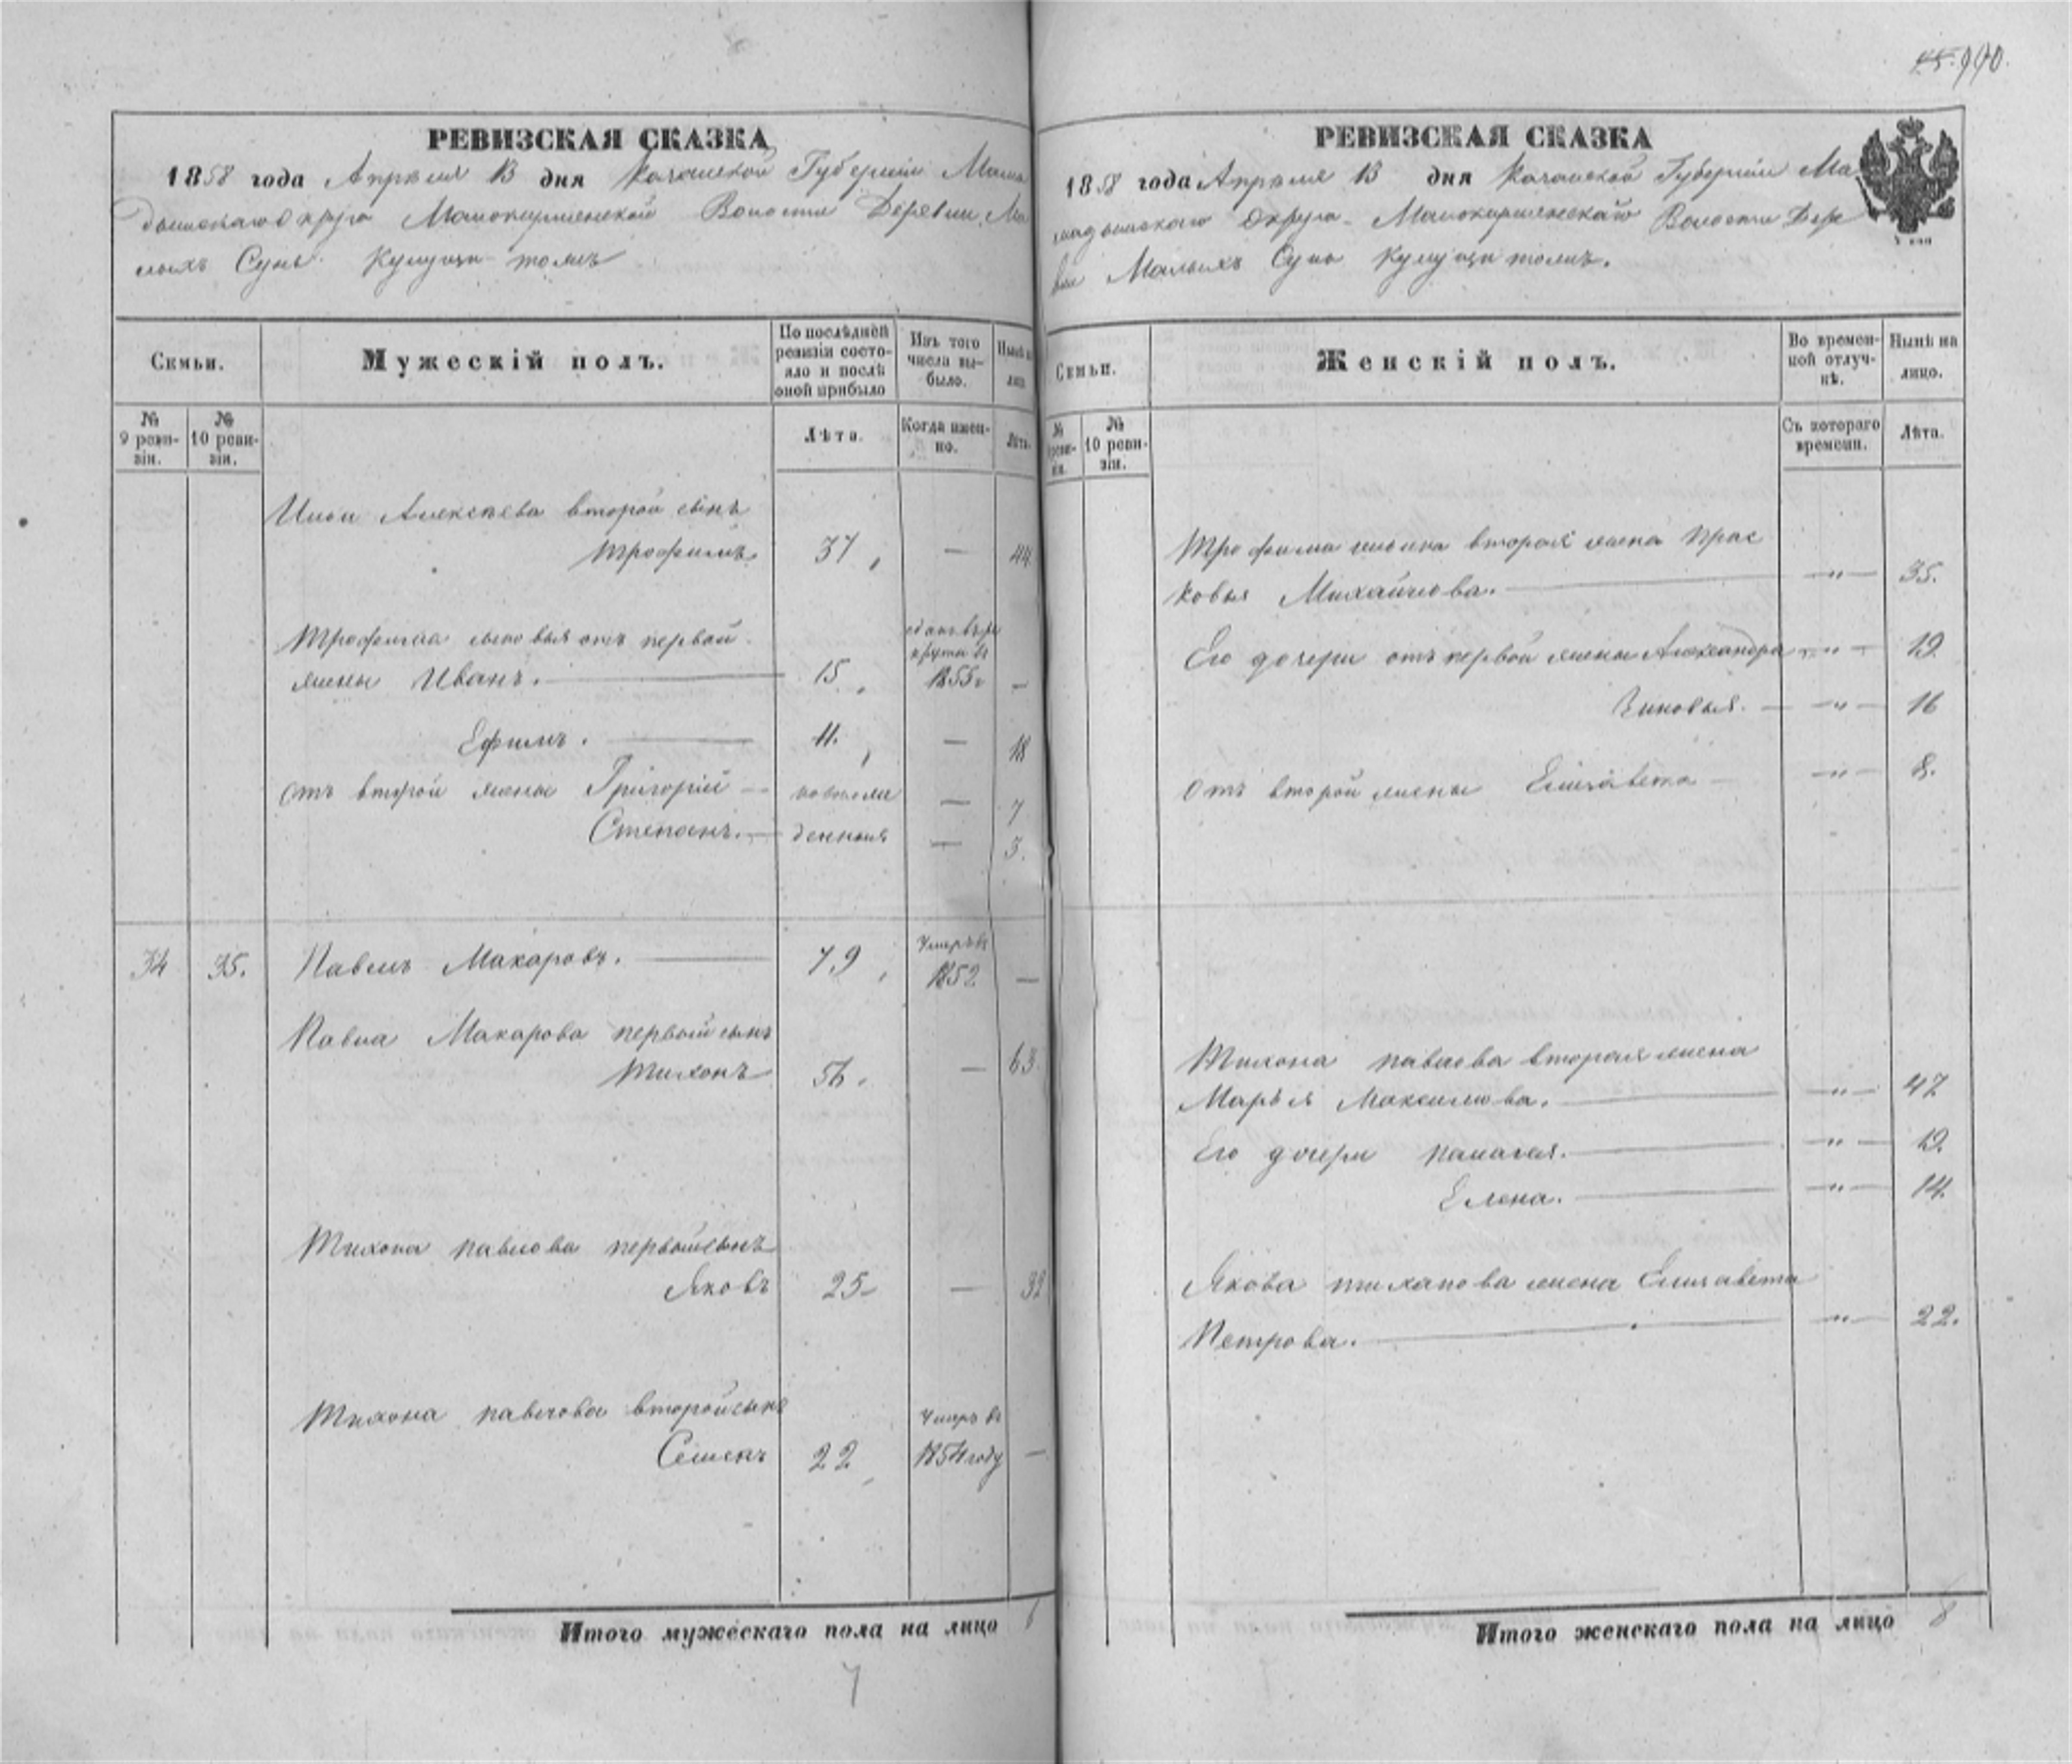 990.
РЕВИЗСКАЯ СКАЗКА
1858 года Апреля 13 дня Казанской Губернии Мама
дышскаго округа Малокирменской Волости Деревни Ма
лыхъ Сунь тожъ
Семьи.
Мужескій полъ.
По послѣдней ревизіи состояло и послѣ оной прибыло
Изъ того числа выбыло.
Нынѣ на лицо
№ 9 ревизіи.
№ 10 ревизіи.
Лѣта.
Когда именно.
Лѣта.
Ильи Алексѣева второй сынъ
Трофимъ. 37 — 44
Трофима сыновья отъ первой
жены Иванъ. 15 сданъ въ рекруты въ 1855 —
Ефимъ. 11. — 18
отъ второй жены Григорій — 7
Степанъ. — 3.
34 35. Павелъ Макаровъ. 79 Умеръ въ 1852 —
Павла Макарова первый сынъ
Тихонъ 56. — 63
Тихона павлова первый сынъ
Яковъ 25 — 32
Тихона павлова второй сынъ
Семенъ 22 Умеръ въ 1854 году —
Итого мужескаго пола на лицо 6
7
РЕВИЗСКАЯ СКАЗКА
1858 года Апреля 13 дня Казанской Губерніи Ма
мадышскаго Округа Малокирменскаго Волости Дере
вни Малыхъ Сунь тожъ.
Семьи.
Женскій полъ.
Во временной отлучкѣ.
Нынѣ на лицо.
№ 10 ревизіи.
Съ котораго времени.
Лѣта.
Трофима ильина вторая жена Прас
ковья Михайлова. — " — 35.
Его дочери отъ первой жены Александра — " — 19
Зиновья. — " — 16
Отъ второй жены Елизавета — " — 8.
Тихона павлова вторая жена
Марья Максимова. — " — 47
Его дочери палагея. — " — 19.
Елена. — " — 14.
Якова тиханова жена Елизавета
Петрова. — " — 22.
Итого женскаго пола на лицо 8